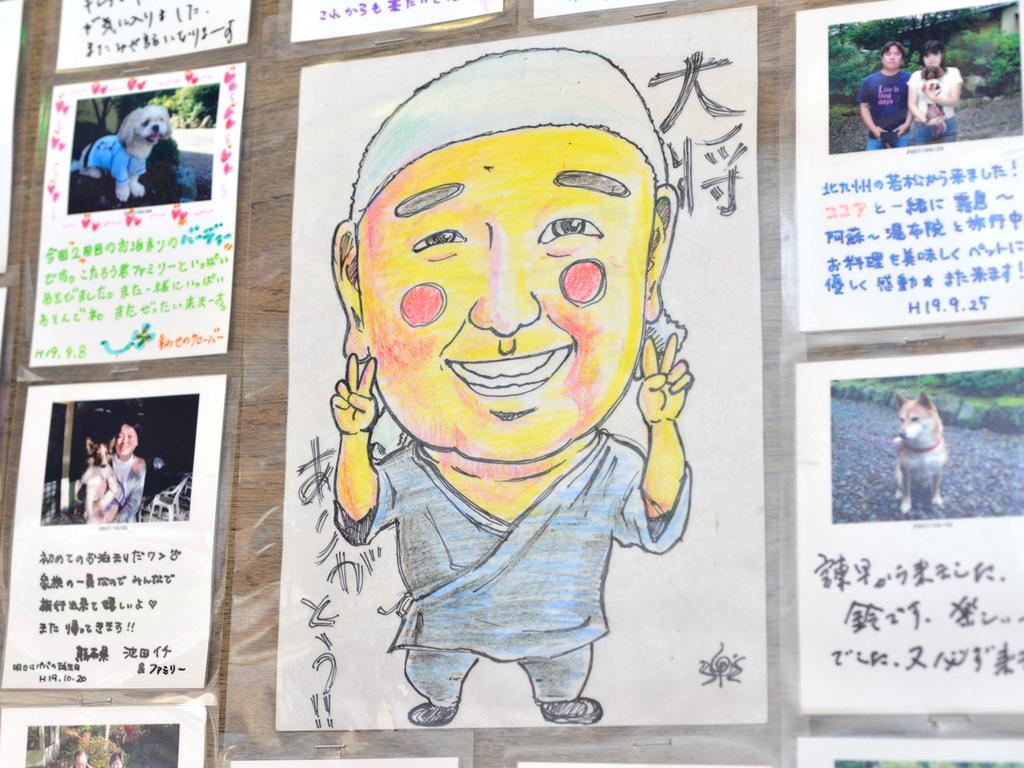 が気に入りました。
またお世話になりまーす
これからも来たい
今回2回目のお泊まりのバーディー
です。こたろう君ファミリーといっぱい
あそびました。また一緒にいっぱい
あそんでね。またぜったい来まーす。
H19.9.8
幸わせのクローバー
初めてのお泊まりだワン
家族の一員なので みんなで
旅行出来て嬉しいよ♡
また 帰ってきます!!
熊本県 池田イチ
&ファミリー
明日はパパの誕生日
H19.10.20
大将
ありがとう!!
Life is
Dog
days
2007/09/25
北九州の若松から来ました!
ココアと一緒に 霧島〜
阿蘇〜湯布院と旅行中
お料理も美味しくペットに
優しく感動 また来ます!
H19.9.25
諫早から来ました。
鈴です。楽しい
でした。又必ず来